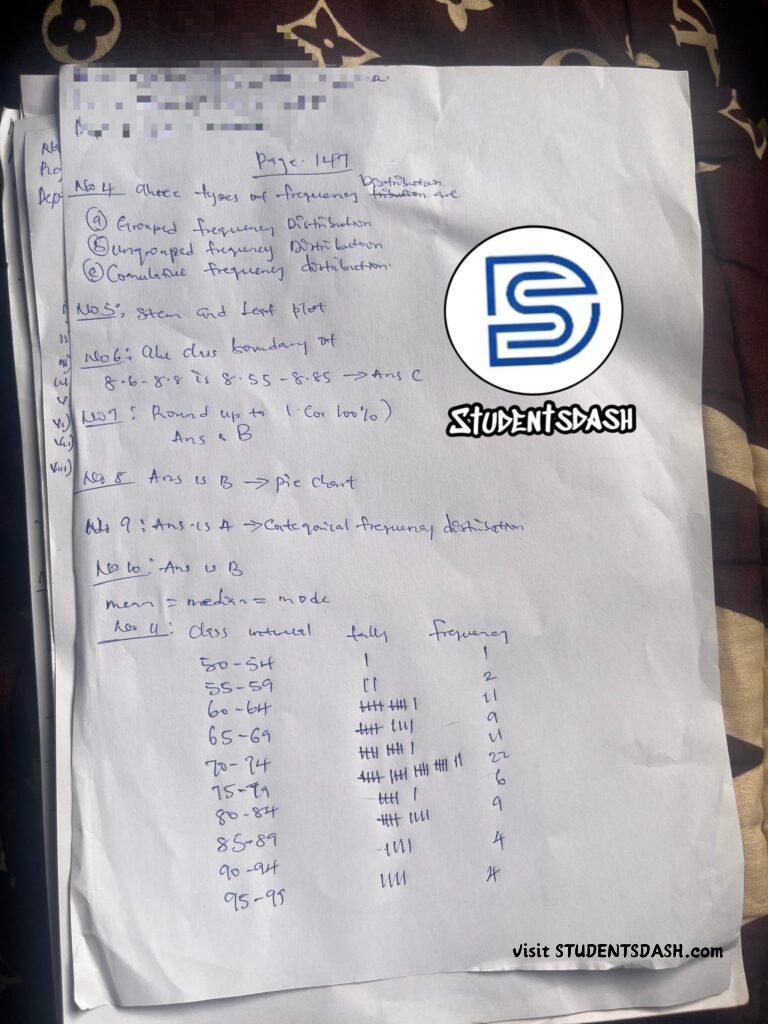 Page. 147
No 4 three types of frequency Distribution are
(a) Grouped frequency Distribution
(b) ungrouped frequency Distribution
(c) Comulative frequency distribution.
No 5: Stem and Leaf plot
No 6: The class boundary of
8.6 - 8.8 is 8.55 - 8.85 → Ans C
No 7: Round up to 1 (or 100%)
Ans B
No 8 Ans is B → pie chart
No 9: Ans is A → Categorical frequency distribution
No 10: Ans is B
mean = median = mode
No 11: class interval tally frequency
50-54 | 1
55-59 || 2
60-64 11
65-69 9
70-74 11
75-79 22
80-84 6
85-89 9
90-94 |||| 4
95-99 |||| 4
STUDENTSDASH
visit STUDENTSDASH.com